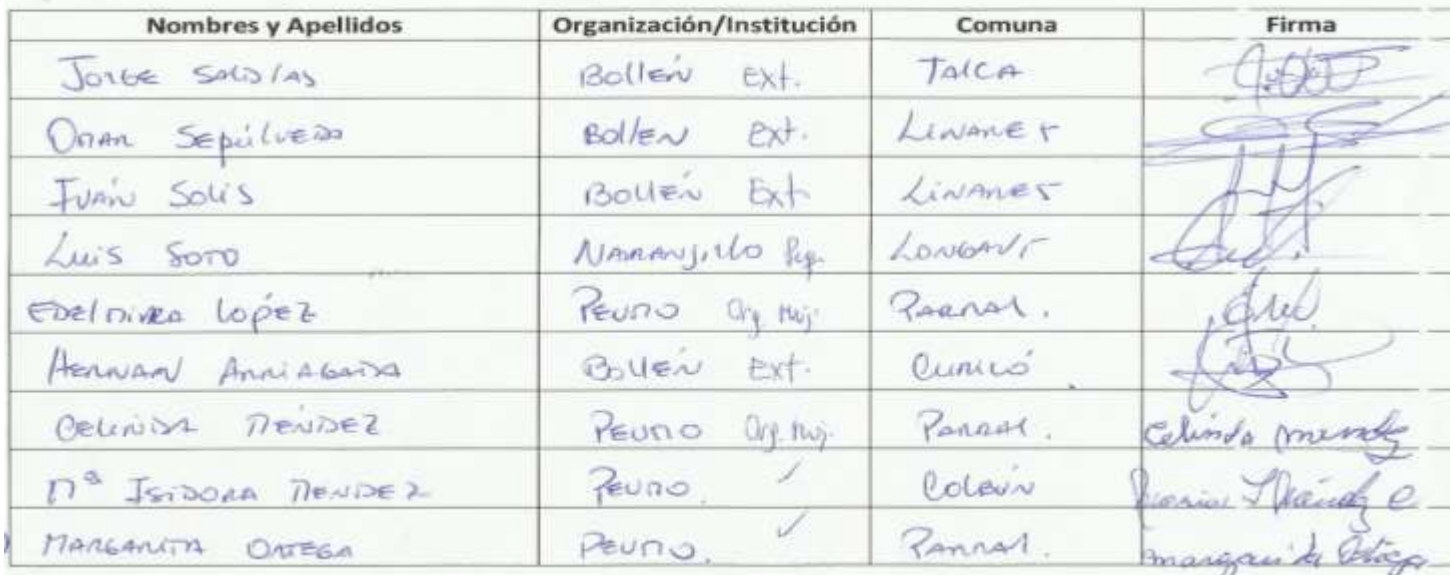 Nombres y Apellidos Organización/Institución Comuna Firma
Jorge Saldías Bollén Ext. Talca
Omar Sepúlveda Bollen Ext. Linares
Iván Solís Bollén Ext Linares
Luis Soto Naranjillo Longaví
Edelmira López Peumo Org. Muj. Parral.
Hernan Arriagada Bollén Ext. Curicó
Celinda Méndez Peumo Org. Muj. Parral. Celinda Mendez
Mª Isidora Mendez Peumo. ✓ Colbún
Margarita Ortega Peumo. ✓ Parral. Margarita Ortega